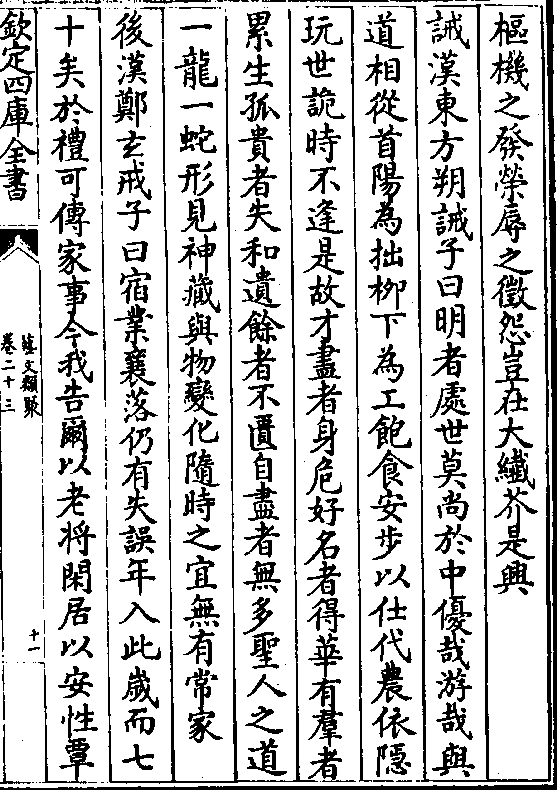 樞機之發榮辱之徵怨豈在大纎芥是興
誡漢東方朔誡子曰明者處世莫尚於中優哉游哉與
道相從首陽為拙柳下為工飽食安步以仕代農依隱
玩世詭時不逢是故才盡者身危好名者得華有羣者
累生孤貴者失和遺餘者不匱自盡者無多聖人之道
一龍一蛇形見神藏與物變化隨時之宜無有常家
後漢鄭玄戒子曰宿業衰落仍有失誤年入此歲而七
十矣於禮可傳家事今我告爾以老将閑居以安性覃
欽定四庫全書
藝文類聚
卷二十三
十一